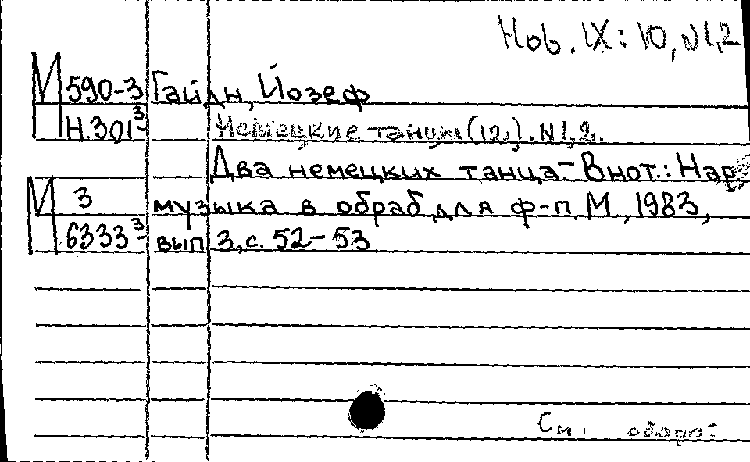 Hob. IX: 10, №1,2
М 590-3 Гайдн, Йозеф
Н.301-3 Немецкие танцы (12). №1,2.
Два немецких танца - В нот.: Нар.
М 3 музыка в обраб. для ф-п. М., 1983,
6333-3 вып. 3, с. 52-53
См. оборот